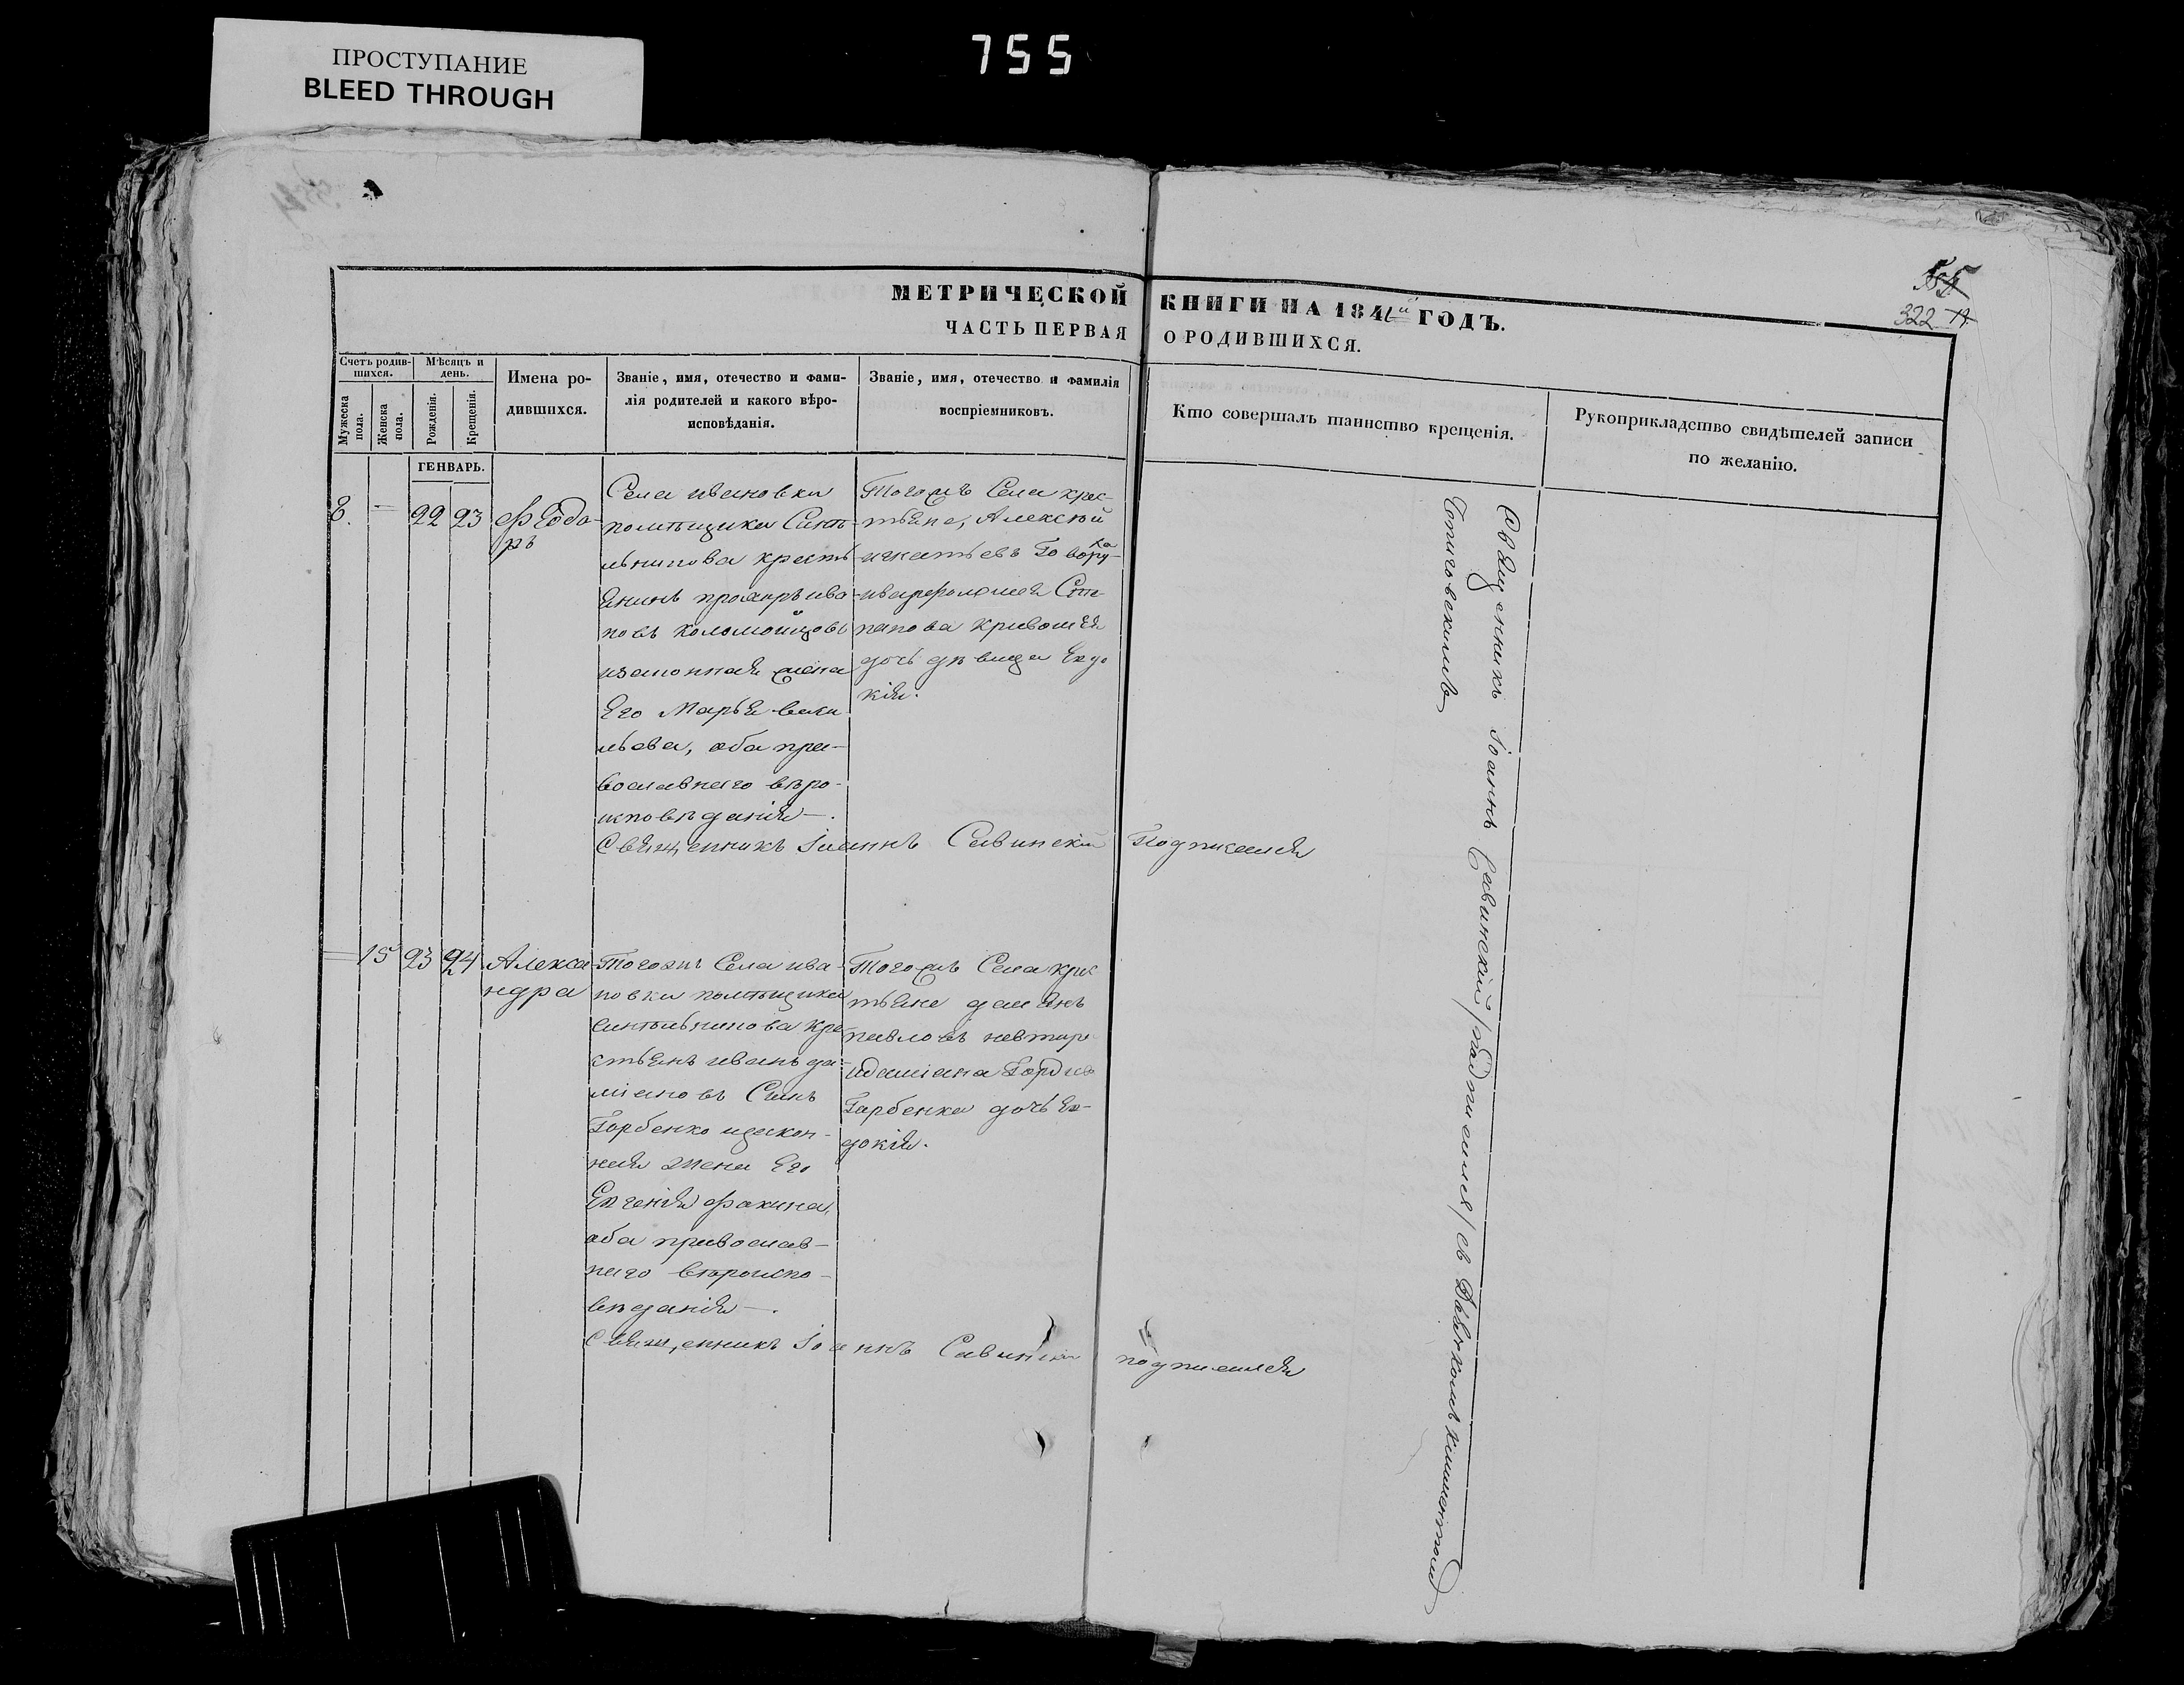 ПРОСТУПАНИЕ
BLEED THROUGH
755
322
МЕТРИЧЕСКОЙ КНИГИ НА 1841й ГОДЪ.
ЧАСТЬ ПЕРВАЯ О РОДИВШИХСЯ.
Счетъ родив-
шихся.
Мѣсяцъ и
день.
Мужеска
пола.
Женска
пола.
Рожденія.
Крещенія.
Имена ро-
дившихся.
Званіе, имя, отечество и фами-
лія родителей и какого вѣро-
исповѣданія.
Званіе, имя, отечество и фамилія
воспріемниковъ.
Кто совершалъ таинство крещенія.
Рукоприкладство свидѣтелей записи
по желанію.
ГЕНВАРЬ.
8. — 22 23
Ѳеодо-
ръ
Села ивановки
помѣщика Синте-
льникова крестья
Енинъ прохоръ ива
новъ коломойцовъ
изаконная жена
Его Марья васи
льева, оба пра-
вославнаго вѣро-
исповѣданія —.
Тогожъ Села крес-
тьяне, Алексѣй
игнатьевъ Говоруха-
иварфоломея Сте-
панова Кривошея
дочь дѣвица Евдо
кія.
Священникъ Іоаннъ Савинскій Подписался
— 15 23 24
Алекса-
ндра
Тогожъ Села ива-
новки помѣщика
синтельникова кре-
стьянъ иванъ да-
міановъ Сынъ
Горбенко изакон-
ная жена Его
Евгенія Фокина,
оба православ-
наго вѣроиспо-
вѣданія —.
Тогожъ Села крес
тьяне даміанъ
павловъ
идаміана Гордіе
Гарбенка дочь Ев-
докія.
Священникъ Іоаннъ Савинскій подписался
Священникъ Іоаннъ Савинскій / подписался / съ